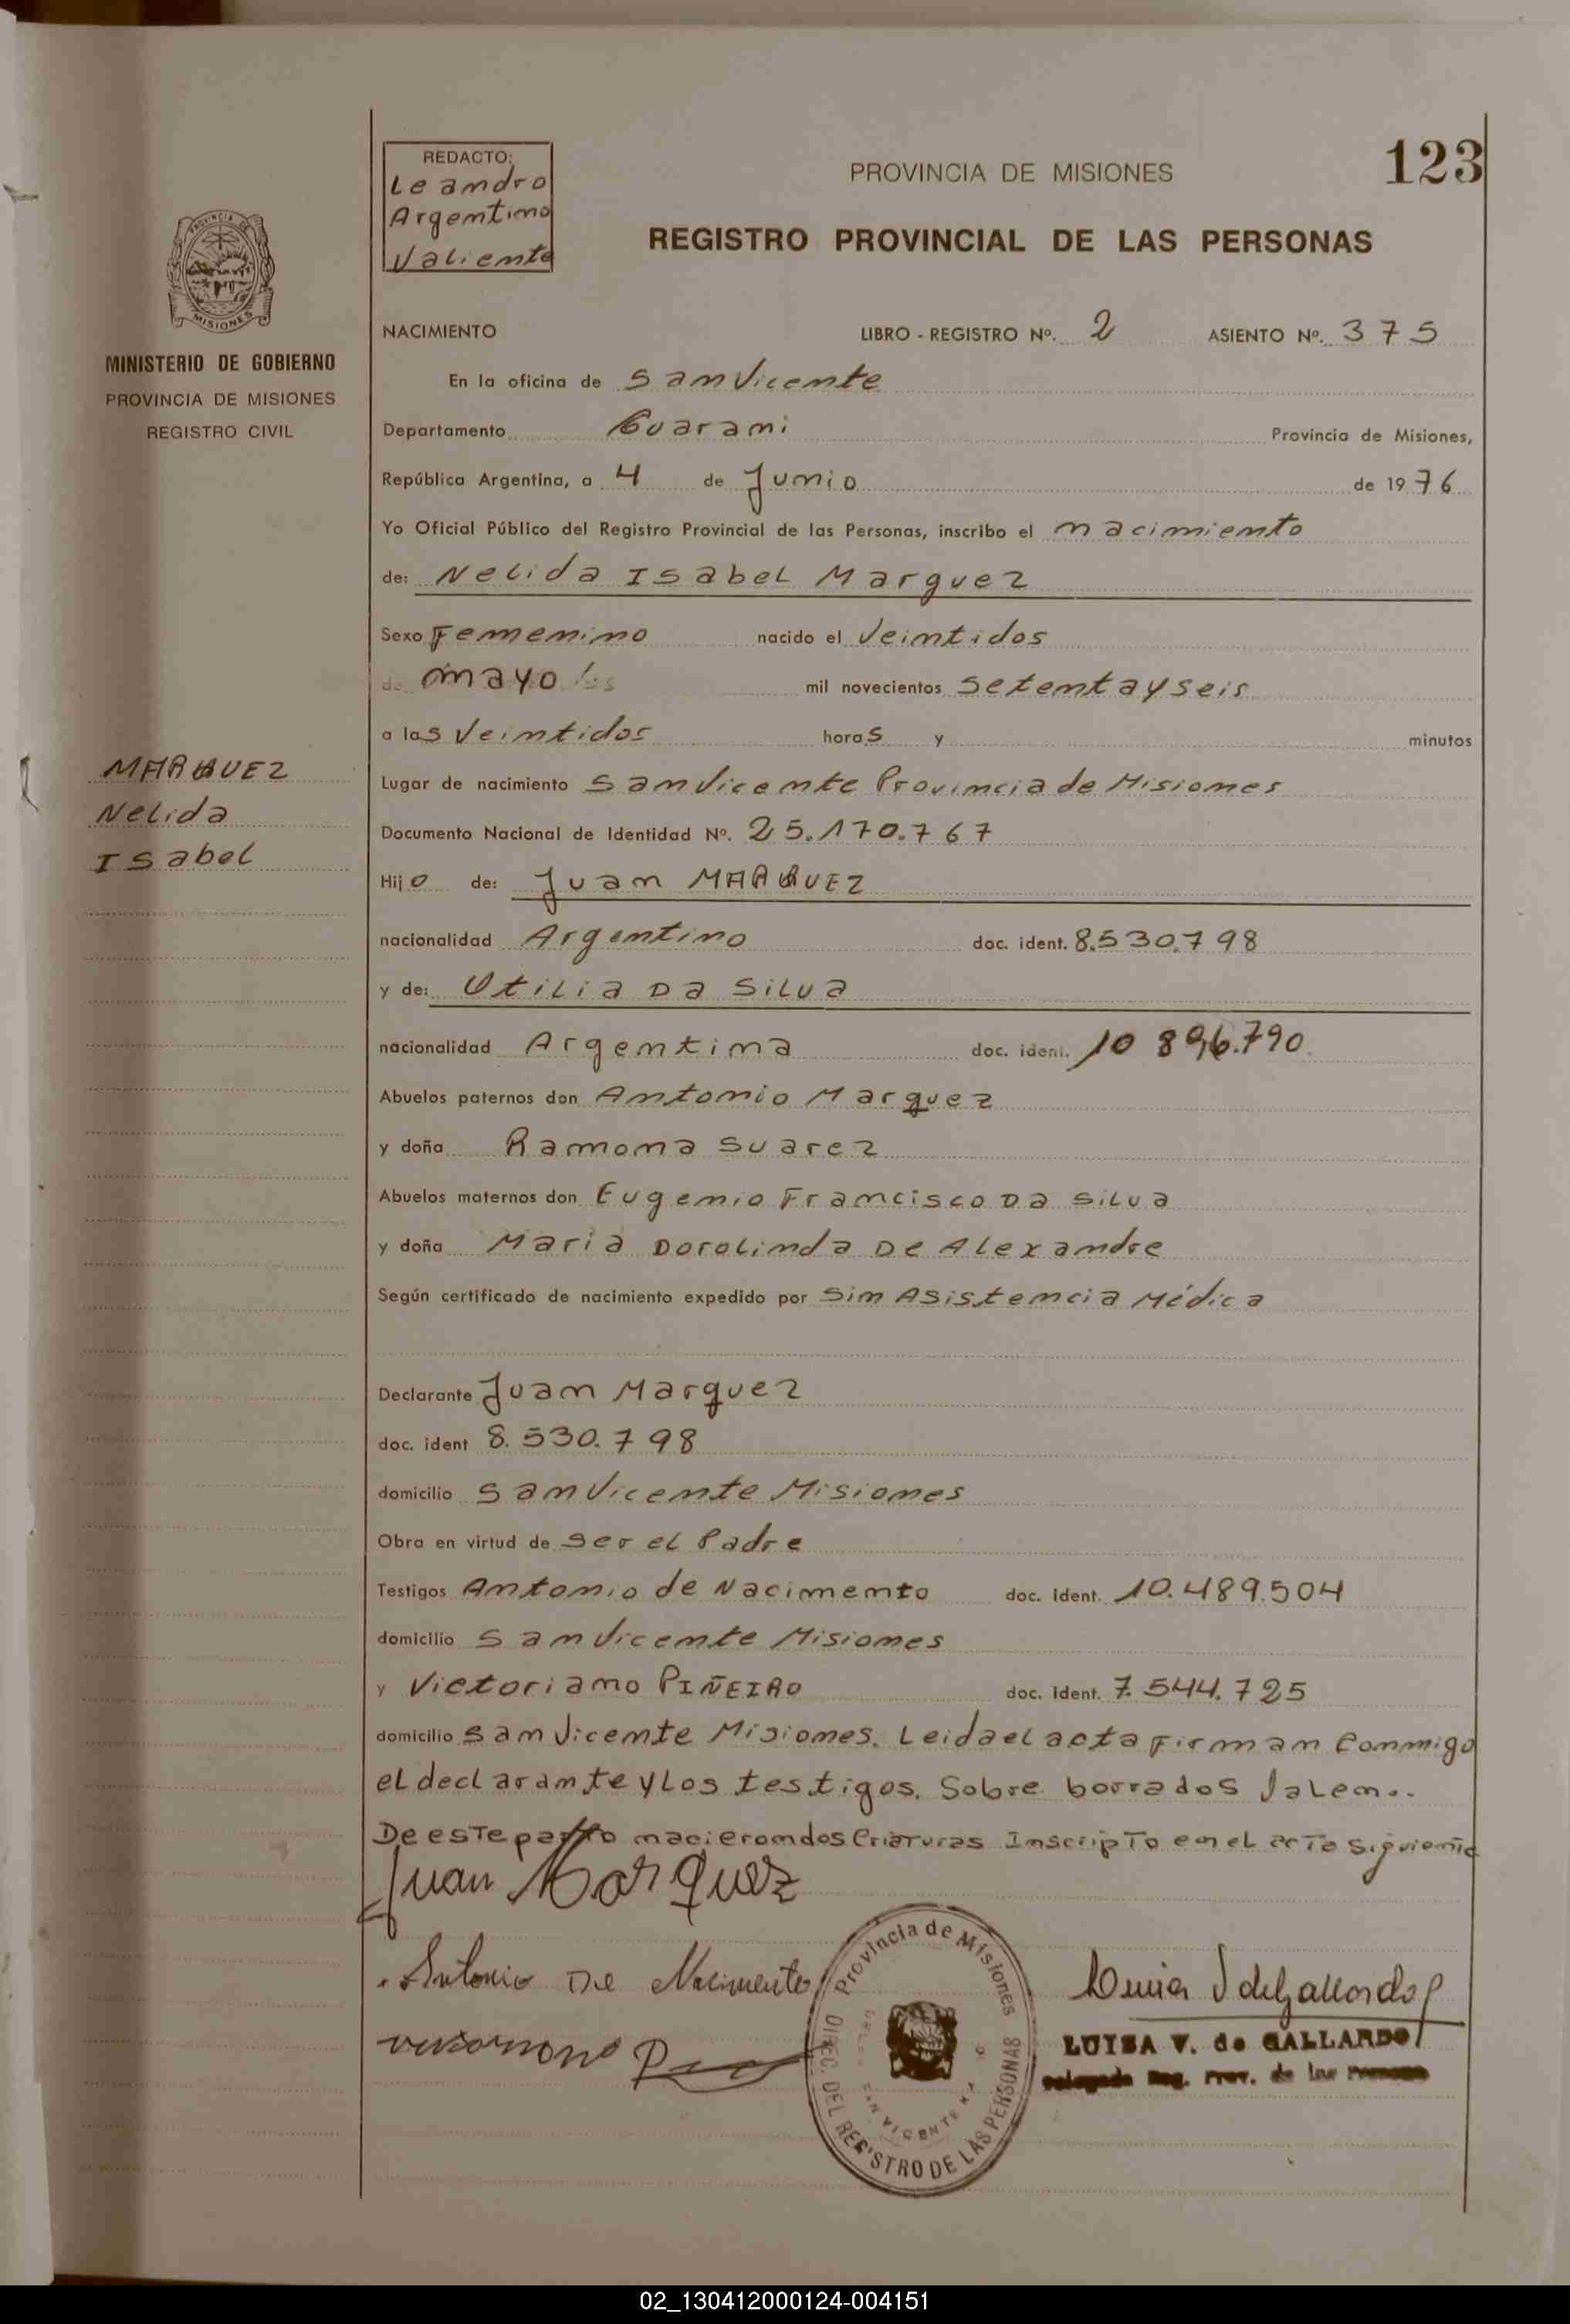 REDACTO:
Leandro
Argentino
Valiente
PROVINCIA DE MISIONES
123
REGISTRO PROVINCIAL DE LAS PERSONAS
PROVINCIA DE
MISIONES
MINISTERIO DE GOBIERNO
PROVINCIA DE MISIONES
REGISTRO CIVIL
MARQUEZ
Nelida
Isabel
NACIMIENTO LIBRO - REGISTRO Nº. 2 ASIENTO Nº. 375
En la oficina de San Vicente
Departamento Guarani Provincia de Misiones,
República Argentina, a 4 de Junio de 1976
Yo Oficial Público del Registro Provincial de las Personas, inscribo el nacimiento
de: Nelida Isabel Marquez
Sexo Femenino nacido el Veintidos
de mayo mil novecientos setentayseis
a las Veintidos horas y minutos
Lugar de nacimiento San Vicente Provincia de Misiones
Documento Nacional de Identidad Nº. 25.170.767
Hijo de: Juan MARQUEZ
nacionalidad Argentino doc. ident. 8.530.798
y de: Otilia Da Silva
nacionalidad Argentina doc. ident. 10 896.790
Abuelos paternos don Antonio Marquez
y doña Ramona Suarez
Abuelos maternos don Eugenio Francisco Da Silva
y doña Maria Dorolinda De Alexandre
Según certificado de nacimiento expedido por Sin Asistencia Médica
Declarante Juan Marquez
doc. ident 8.530.798
domicilio San Vicente Misiones
Obra en virtud de ser el Padre
Testigos Antonio de Nacimento doc. ident. 10.489.504
domicilio San Vicente Misiones
y Victoriano PIÑEIRO doc. ident. 7.544.725
domicilio San Vicente Misiones. Leida el acta Firman Conmigo
el declarante y los testigos. Sobre borrados Valen..
De este parto nacieron dos Criaturas Inscripto en el acta siguiente
Juan Marquez
Antonio De Nacimento
Provincia de Misiones
SAN VICENTE
DIREC. DEL REGISTRO DE LAS PERSONAS
LUISA V. de GALLARDO
Delegada Reg. Prov. de las Personas
02_130412000124-004151